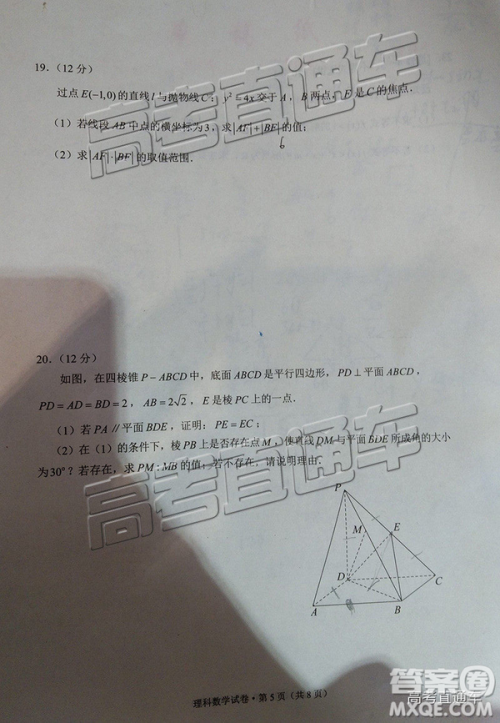 19.（12 分）
过点 E(−1,0) 的直线 l 与抛物线 C： y² = 4x 交于 A，B 两点，F 是 C 的焦点.
（1）若线段 AB 中点的横坐标为 3，求 |AF|+|BF| 的值；
6
（2）求 |AF|·|BF| 的取值范围.
高考直通车
20.（12 分）
如图，在四棱锥 P − ABCD 中，底面 ABCD 是平行四边形，PD ⊥ 平面 ABCD，
PD = AD = BD = 2， AB = 2√2，E 是棱 PC 上的一点.
（1）若 PA // 平面 BDE，证明：PE = EC；
（2）在（1）的条件下，棱 PB 上是否存在点 M，使直线 DM 与平面 BDE 所成角的大小
为 30°？若存在，求 PM : MB 的值；若不存在，请说明理由.
高考直通车
P
E
M
D
C
A
B
理科数学试卷·第 5 页（共 8 页）
高考直通车
答案圈
MXQE.COM